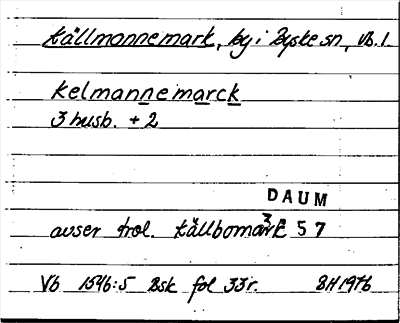 Källmannemark, by i Byske sn, Vb. l.
Kelmannemarck
3 husb. + 2
DAUM
3757
avser trol. Källbomark
Vb 1546:5 Bsk fol 33r. BH 1976